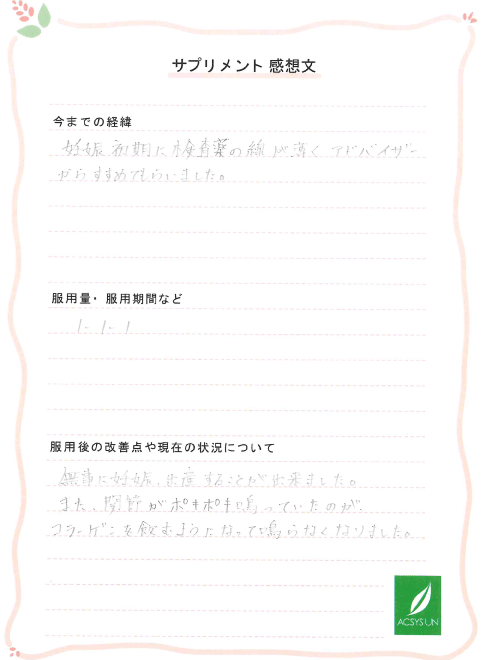 サプリメント 感想文
今までの経緯
妊娠初期に検査薬の線が薄くアドバイザー
からすすめてもらいました。
服用量・服用期間など
1-1-1
服用後の改善点や現在の状況について
無事に妊娠、出産することが出来ました。
また、関節がポキポキ鳴っていたのが、
コラーゲンを飲むようになって鳴らなくなりました。
ACSYSUN